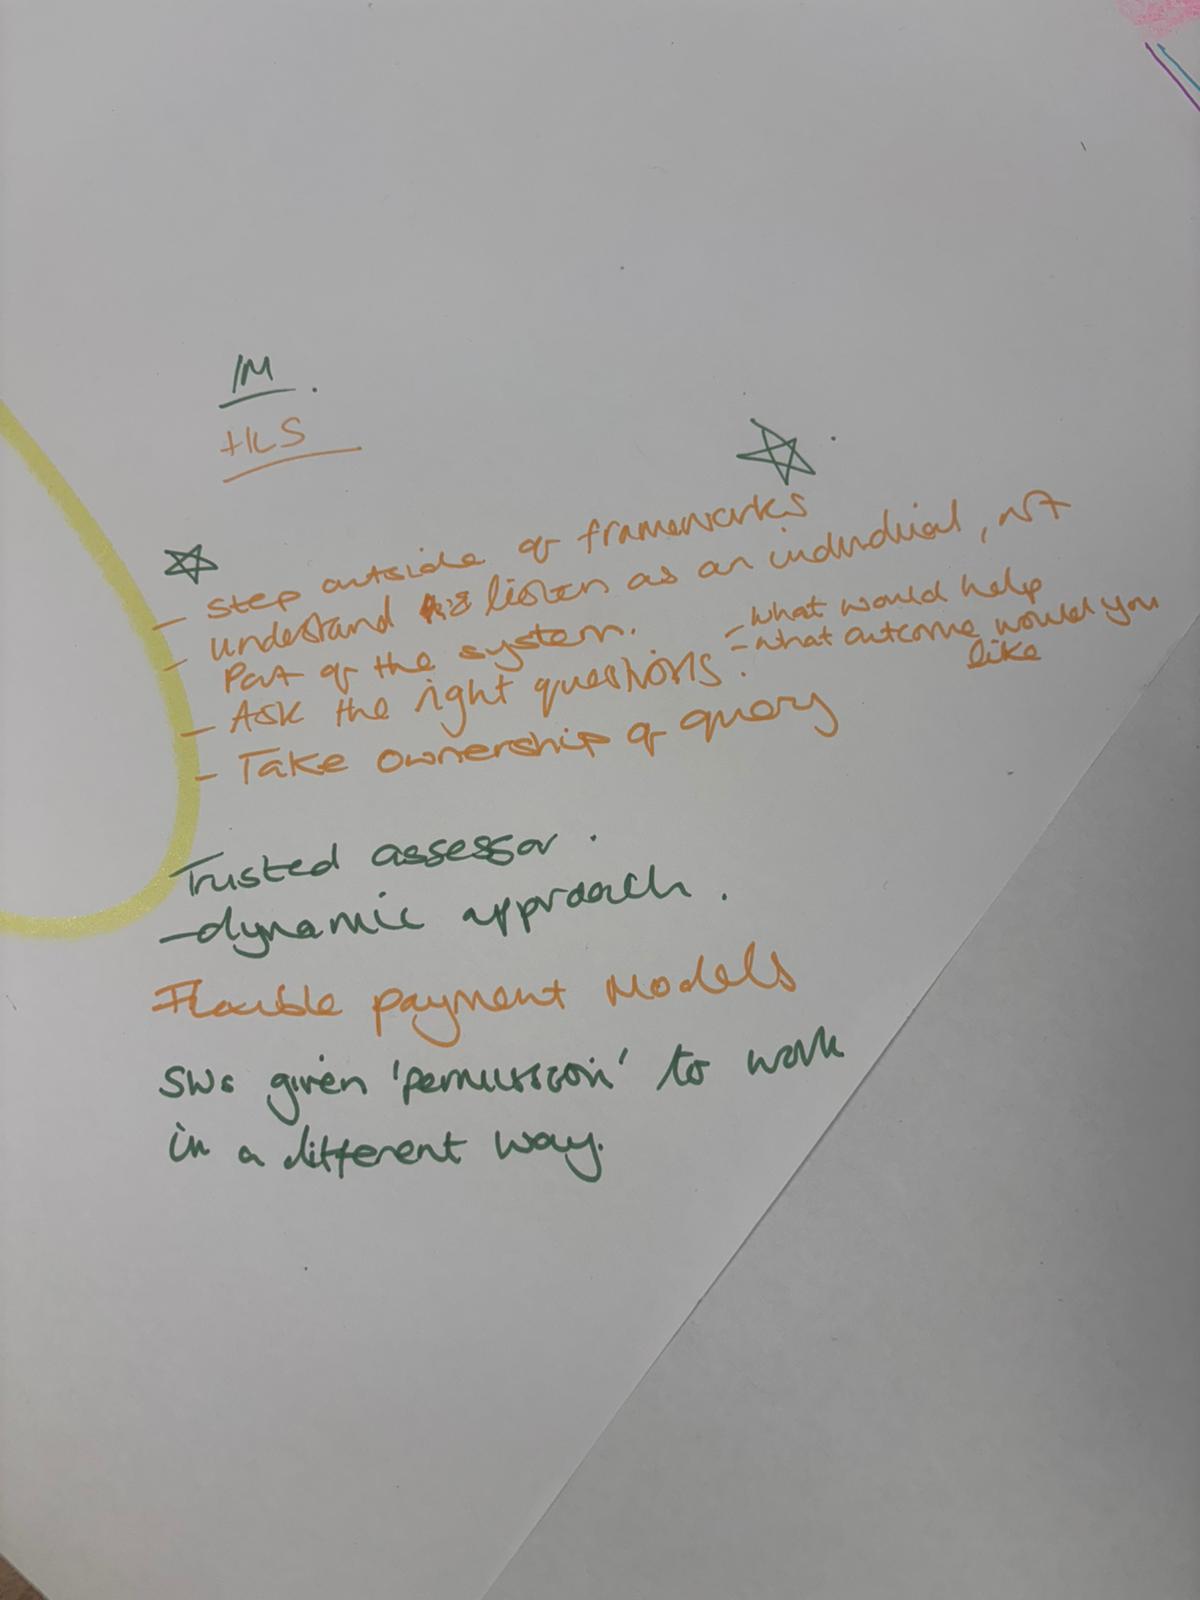 IM
HLS
- Step outside of frameworks
- understand & listen as an individual, not
part of the system.
- Ask the right questions. - what would help
- what outcome would you
like
- Take ownership of query
Trusted assessor.
- dynamic approach.
Flexible payment models
SWs given 'permission' to work
in a different way.